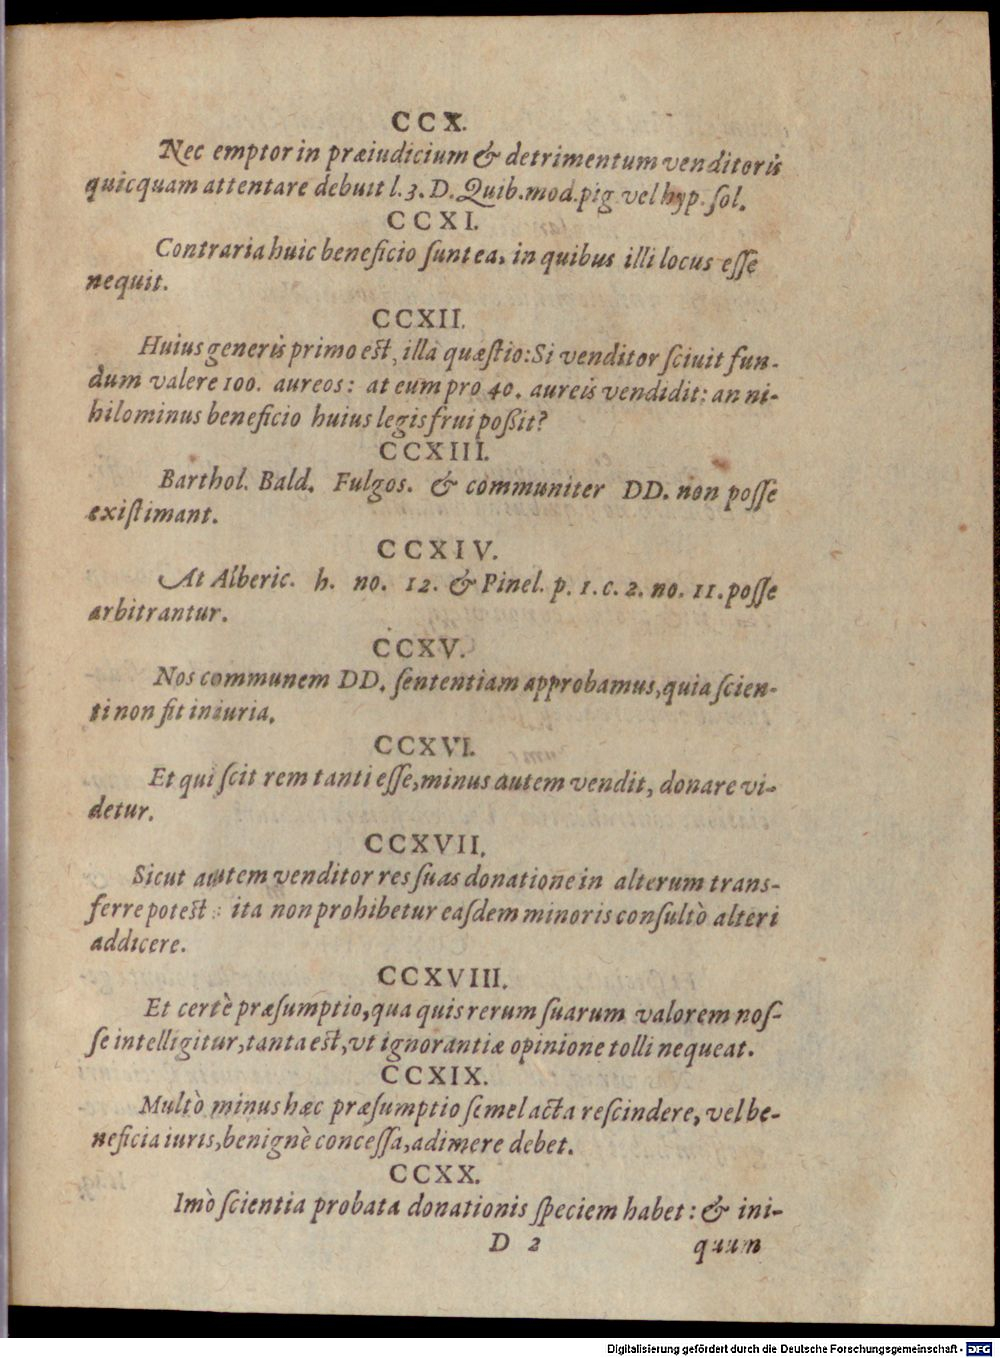 CCX.
Nec emptor in præiudicium & detrimentum venditoris
quicquam attentare debuit l. 3. D. Quib. mod. pig vel hyp. ſol.
CCXI.
Contraria huic beneficio ſunt ea, in quibus illi locus eſſe
nequit.
CCXII.
Huius generis primo est, illa quæſtio: Si venditor ſciuit fun-
dum valere 100. aureos: at eum pro 40. aureis vendidit: an ni-
hilominus beneficio huius legis frui poßit?
CCXIII.
Barthol. Bald. Fulgos. & communiter DD. non poſſe
exiſtimant.
CCXIV.
At Alberic. h. no. 12. & Pinel. p. 1. c. 2. no. 11. poſſe
arbitrantur.
CCXV.
Nos communem DD. ſententiam approbamus, quia ſcien-
ti non fit iniuria.
CCXVI.
Et qui ſcit rem tanti eſſe, minus autem vendit, donare vi-
detur.
CCXVII.
Sicut autem venditor res ſuas donatione in alterum trans-
ferre potest: ita non prohibetur eaſdem minoris conſultò alteri
addicere.
CCXVIII.
Et certè præſumptio, qua quis rerum ſuarum valorem noſ-
ſe intelligitur, tanta est, vt ignorantiæ opinione tolli nequeat.
CCXIX.
Multò minus hæc præſumptio ſemel acta reſcindere, vel be-
neficia iuris, benignè conceſſa, adimere debet.
CCXX.
Imò ſcientia probata donationis ſpeciem habet: & ini-
D 2 quum
Digitalisierung gefördert durch die Deutsche Forschungsgemeinschaft - DFG